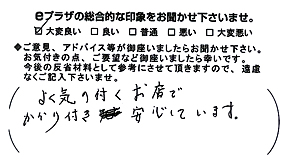 eプラザの総合的な印象をお聞かせ下さいませ。
☑大変良い □良い □普通 □悪い □大変悪い
◆ご意見、アドバイス等が御座いましたらお聞かせ下さい。
お気付きの点、ご要望など御座いましたら幸いです。
今後の反省材料として参考にさせて頂きますので、遠慮
なくご記入下さいませ。
よく気の付くお店で
かかり付き 安心しています。